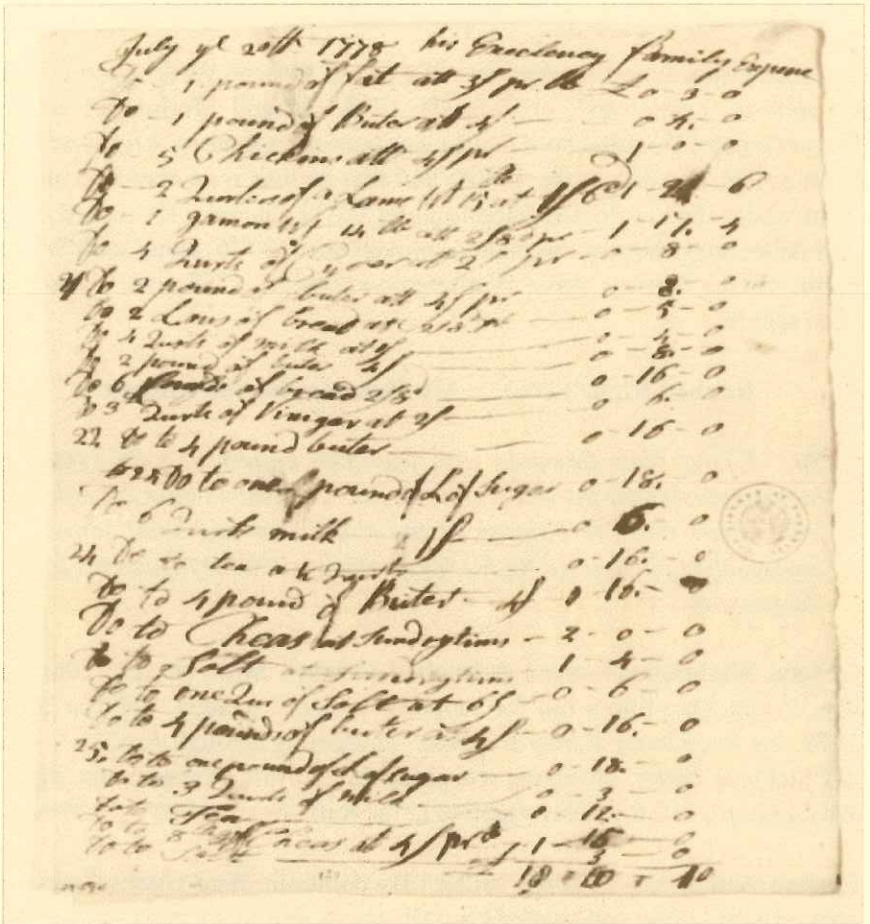 July ye 20th 1778 his Exeelency family Expence
To - 1 pound of fat att 3/ pr lb £ 0 - 3 - 0
Do - 1 pound of Buter att 4/ 0 4. 0
Do 5 Chickens att 4/ pr 1 - 0 - 0
Do - 2 Qurters of a Lame Wt 15 lb at 1/6d 1 - 2 6
Do - 1 gamon Wt 14 lb att 2/8d pr - 1 - 17. 4
Do 4 Qurts of at 2/ pr - 0 8 - 0
21 Do 2 pound of buter att 4/ pr 0 8. 0
Do 2 Lovs of bread at pr 0 - 5 - 0
Do 4 Qurts of milk at 1/ 0 - 4 - 0
Do 2 pound of buter 4/ 0 - 8. - 0
Do 6 pounds of bread 2/8d 0 - 16 - 0
Do 3 Qurts of Vinegar at 2/ 0 6. 0
22. Do to 4 pound buter 0 - 16 - 0
Do to one pound of L of Sugar 0 - 18. - 0
Do 6 Qurts milk 1/ 0 6. 0
24 Do to tea a 1/4 0 - 16. - 0
Do to 4 pound of Buter - 4/ 0 16. - 0
Do to Cheas at Sundrytims - 2 - 0 - 0
Do to Salt at Sundrytims 1 - 4 - 0
Do to one Qur of Salt at 6/ - 0 - 6 - 0
Do to 4 pounds of buter at 4/ - 0 - 16. - 0
25. Do to one pound of L of sugar 0 - 18. - 0
Do to 3 Qurts of milk 0 - 3 - 0
Do to Tea 0 12. - 0
Do to 8 Cheas at 4/ pr lb 1 - 16 - 0
Do to 3 - 0
£ 18 = 10 = 10